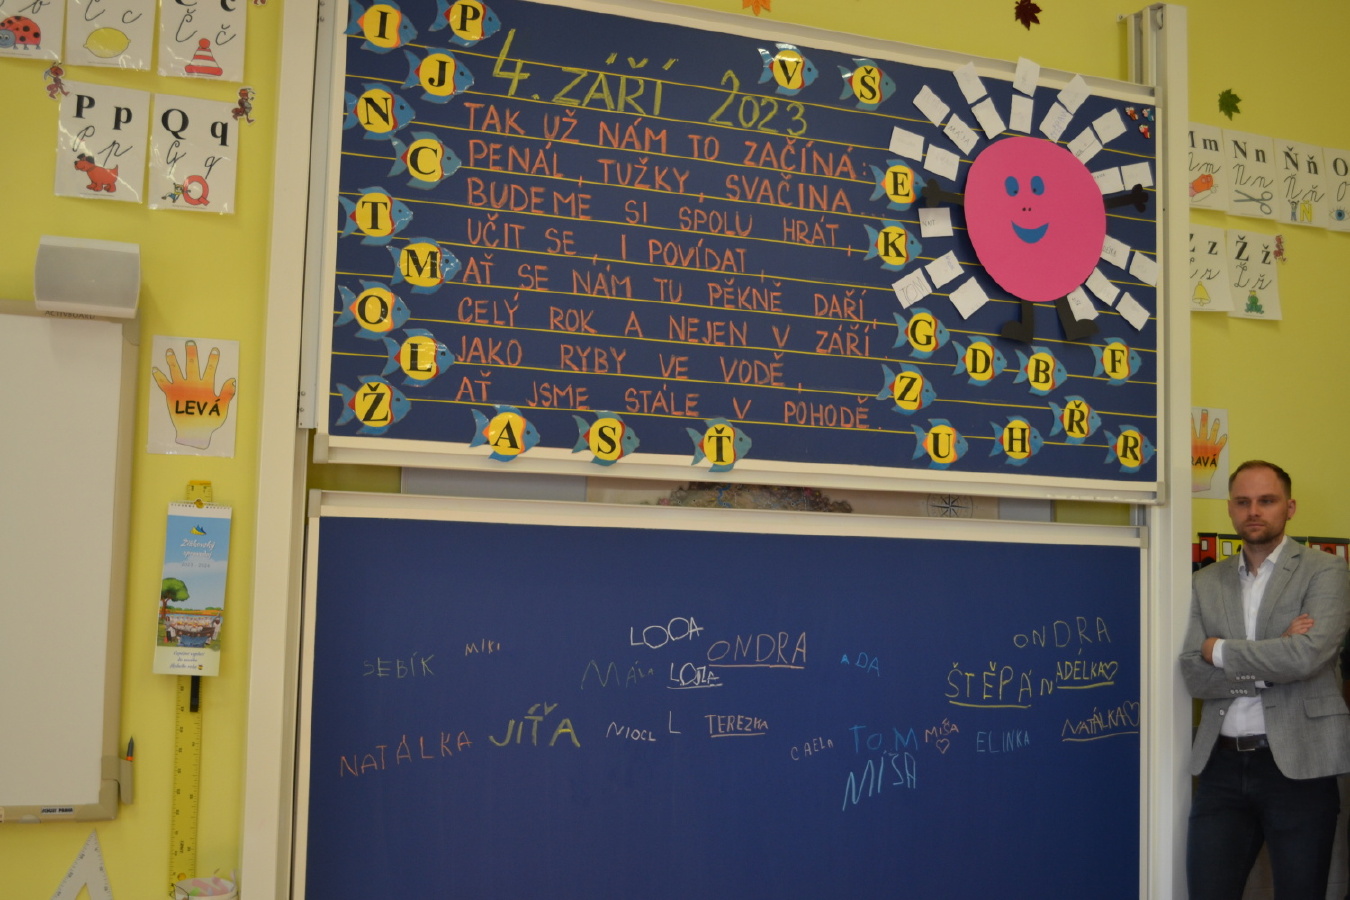 Č č
C c
Č č
P p
Q q
Q
LEVÁ
I
P
J
N
C
T
M
O
L
Ž
A
S
Ť
V
Š
E
K
G
D
B
F
Z
U
H
Ř
R
4. ZÁŘÍ 2023
TAK UŽ NÁM TO ZAČÍNÁ:
PENÁL, TUŽKY, SVAČINA...
BUDEME SI SPOLU HRÁT,
UČIT SE, I POVÍDAT,
AŤ SE NÁM TU PĚKNĚ DAŘÍ,
CELÝ ROK A NEJEN V ZÁŘÍ.
JAKO RYBY VE VODĚ,
AŤ JSME STÁLE V POHODĚ.
M m
N n
Ň ň
O
Z z
Ž ž
SEBÍK
MIKI
LOOA
ONDRA
ADA
ONDRA
ŠTĚPÁN
ADÉLKA
NATÁLKA
JÍŤA
NIOCL
L
TEREZKA
TOM
MÍŠA
MÍŠA
ELINKA
NATÁLKA